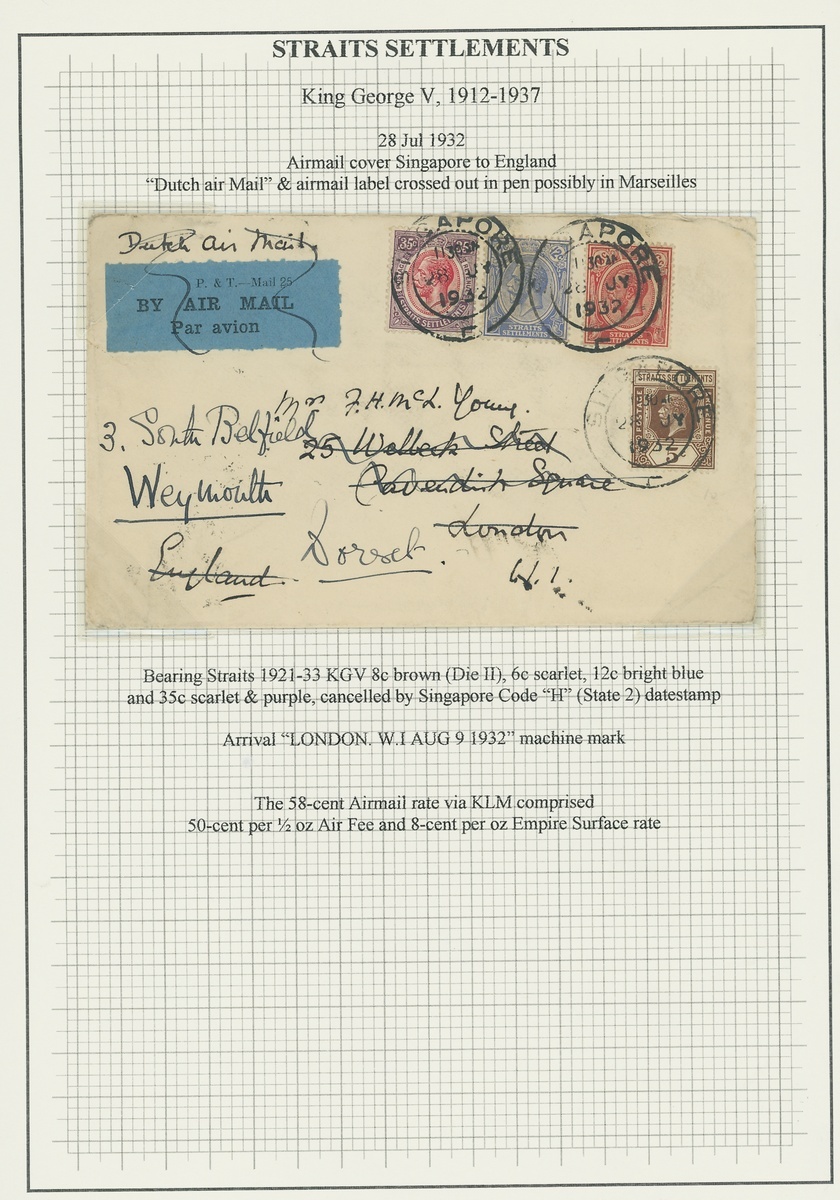 STRAITS SETTLEMENTS
King George V, 1912-1937
28 Jul 1932
Airmail cover Singapore to England
“Dutch air Mail” & airmail label crossed out in pen possibly in Marseilles
Dutch Air Mail.
P. & T.—Mail 25
BY AIR MAIL
Par avion
35c
STRAITS SETTLEMENTS
GAPORE
11.30AM
28 JY
1932
12c
STRAITS SETTLEMENTS
APORE
11.30AM
28 JY
1932
STRAITS SETTLEMENTS
STRAITS SETTLEMENTS
POSTAGE
REVENUE
28 JY
1932
Mrs F.H.McL. Young.
3. South Belfield
25 Welbeck Street
Weymouth
Cavendish Square
London
Dorset.
England.
W.1.
Bearing Straits 1921-33 KGV 8c brown (Die II), 6c scarlet, 12c bright blue
and 35c scarlet & purple, cancelled by Singapore Code “H” (State 2) datestamp
Arrival “LONDON. W.I AUG 9 1932” machine mark
The 58-cent Airmail rate via KLM comprised
50-cent per ½ oz Air Fee and 8-cent per oz Empire Surface rate